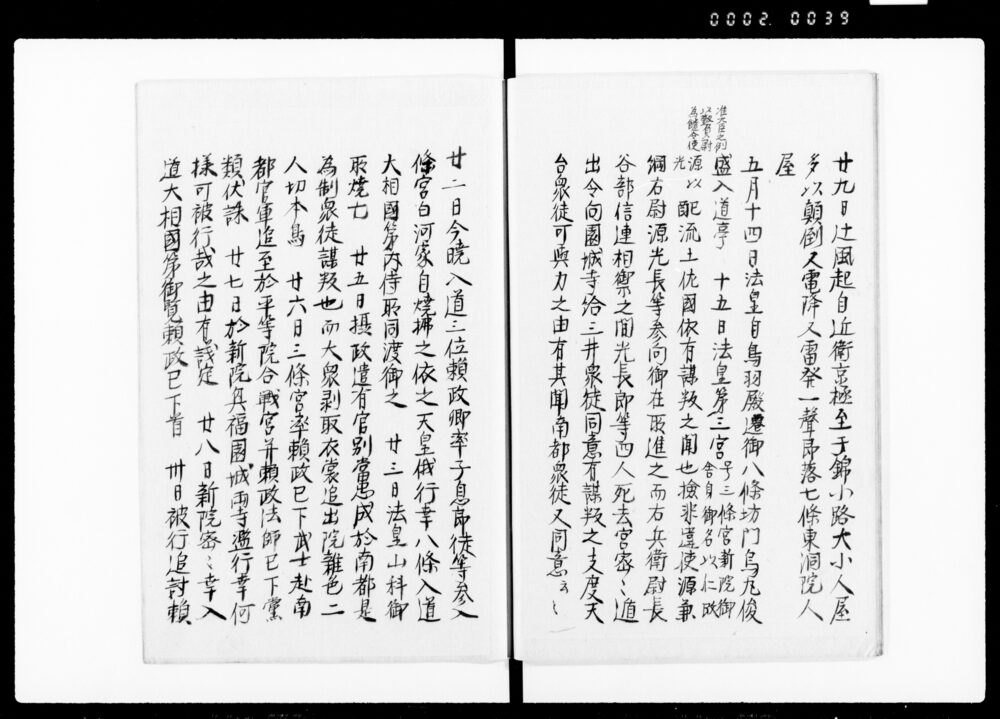 0002.0039
廿九日辻風起自近衛京極至于錦小路大小人屋
多以顛倒又電降又雷発一聲即落七條東洞院人
屋
五月十四日法皇自鳥羽殿遷御八條坊門烏丸俊
准大臣之例
以難負尉
為使
盛入道亭 十五日法皇第三宮
子三條宮新院御
舎身御名以仁改
源以光
配流土佐國依有謀叛之聞也撿非違使源兼
綱右尉源光長等参向御在所進之而右兵衛尉長
谷部信連相禦之間光長郎等四人死去宮密〻逃
出令向園城寺給三井衆徒同意有謀叛之支度天
台衆徒可與力之由有其聞南都衆徒又同意云〻
廿二日今暁入道三位頼政卿率子息郎徒等参入
條宮白河家自焼拂之依之天皇俄行幸八條入道
大相國第内侍所同渡御之 廿三日法皇山科御
所焼亡 廿五日摂政遣有官別當忠成於南都是
為制衆徒謀叛也而大衆剥取衣裳追出院雑色二
人切本鳥 廿六日三條宮率頼政已下武士赴南
都官軍追至於平等院合戰宮并頼政法師已下黨
類伏誅 廿七日於新院興福園城両寺盗行幸何
様可被行哉之由有議定 廿八日新院密〻幸入
道大相國第御覧頼政已下首 卅日被行追討賴